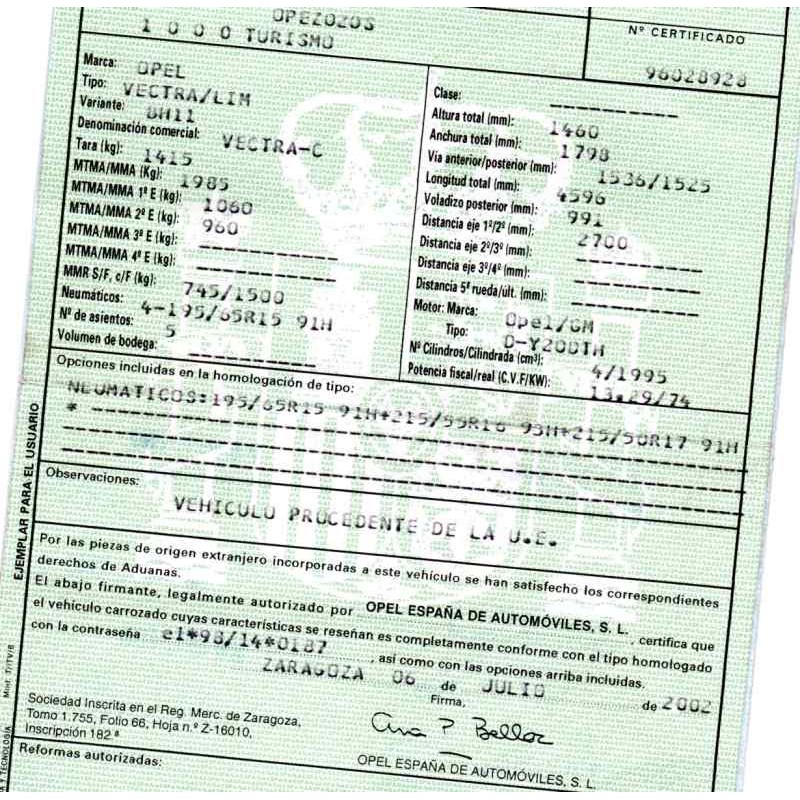 OPEZ0Z0S
Nº CERTIFICADO
1 0 0 0 TURISMO
96028928
Marca: OPEL
Tipo: VECTRA/LIM
Variante: BH11
Denominación comercial: VECTRA-C
Tara (kg): 1415
MTMA/MMA (Kg): 1985
MTMA/MMA 1º E (kg): 1060
MTMA/MMA 2º E (kg): 960
MTMA/MMA 3º E (kg):
MTMA/MMA 4º E (kg):
MMR S/F, c/F (kg): 745/1500
Neumáticos: 4-195/65R15 91H
Nº de asientos: 5
Volumen de bodega:
Clase:
Altura total (mm): 1460
Anchura total (mm): 1798
Via anterior/posterior (mm): 1536/1525
Longitud total (mm): 4596
Voladizo posterior (mm): 991
Distancia eje 1º/2º (mm): 2700
Distancia eje 2º/3º (mm):
Distancia eje 3º/4º (mm):
Distancia 5ª rueda/últ. (mm):
Motor: Marca: Opel/GM
Tipo: D-Y20DTH
Nº Cilindros/Cilindrada (cm³): 4/1995
Potencia fiscal/real (C.V.F/KW): 13.29/74
Opciones incluidas en la homologación de tipo:
NEUMATICOS:195/65R15 91H+215/55R16 93H+215/50R17 91H
*
Observaciones:
VEHICULO PROCEDENTE DE LA U.E.
Por las piezas de origen extranjero incorporadas a este vehículo se han satisfecho los correspondientes
derechos de Aduanas.
El abajo firmante, legalmente autorizado por OPEL ESPAÑA DE AUTOMÓVILES, S. L. , certifica que
el vehículo carrozado cuyas características se reseñan es completamente conforme con el tipo homologado
con la contraseña e1*98/14*0187 , así como con las opciones arriba incluidas.
ZARAGOZA 06 de JULIO de 2002
Firma,
Sociedad Inscrita en el Reg. Merc. de Zaragoza,
Tomo 1.755, Folio 66, Hoja n.º Z-16010,
Inscripción 182 ª
Ana P Bellor
OPEL ESPAÑA DE AUTOMÓVILES, S. L.
Reformas autorizadas:
EJEMPLAR PARA EL USUARIO
Mind. T/ITV/B
TECNOLOGÍA